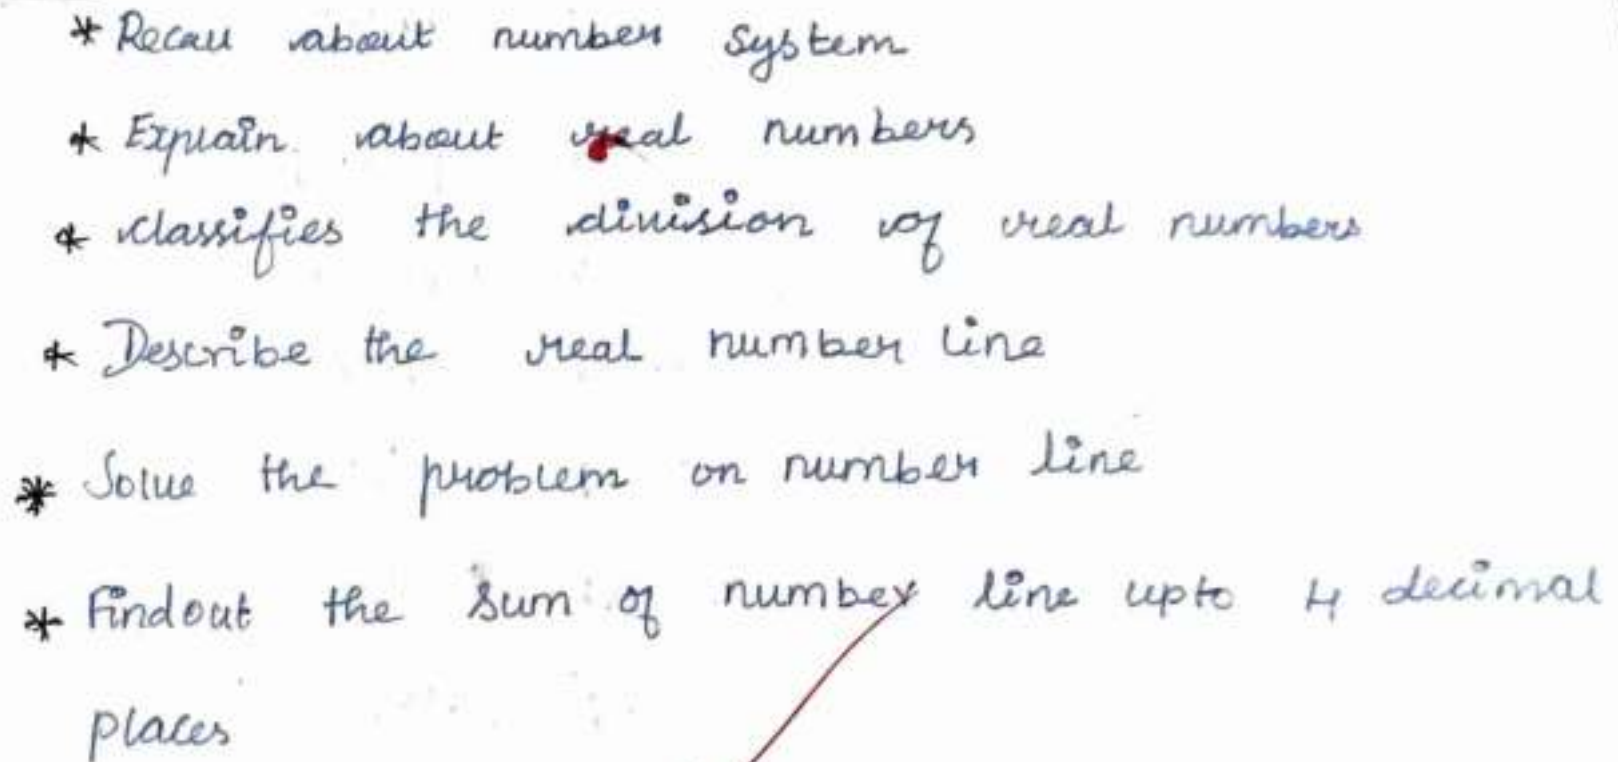 * Recall about number system
* Explain about real numbers
* classifies the division of real numbers
* Describe the real number line
* Solve the problem on number line
* Findout the sum of number line upto 4 decimal
places